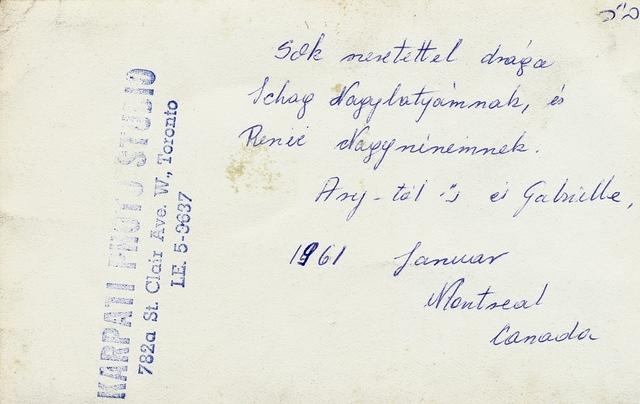 ב"ה
Sok szeretettel drága
Schag Nagybatyámnak, és
Renée Nagynénémnek.
Ary-tól és Gabrielle,
1961 Januar
Montreal
Canada
KARPATI PHOTO STUDIO
782a St. Clair Ave. W., Toronto
LE. 5-9637